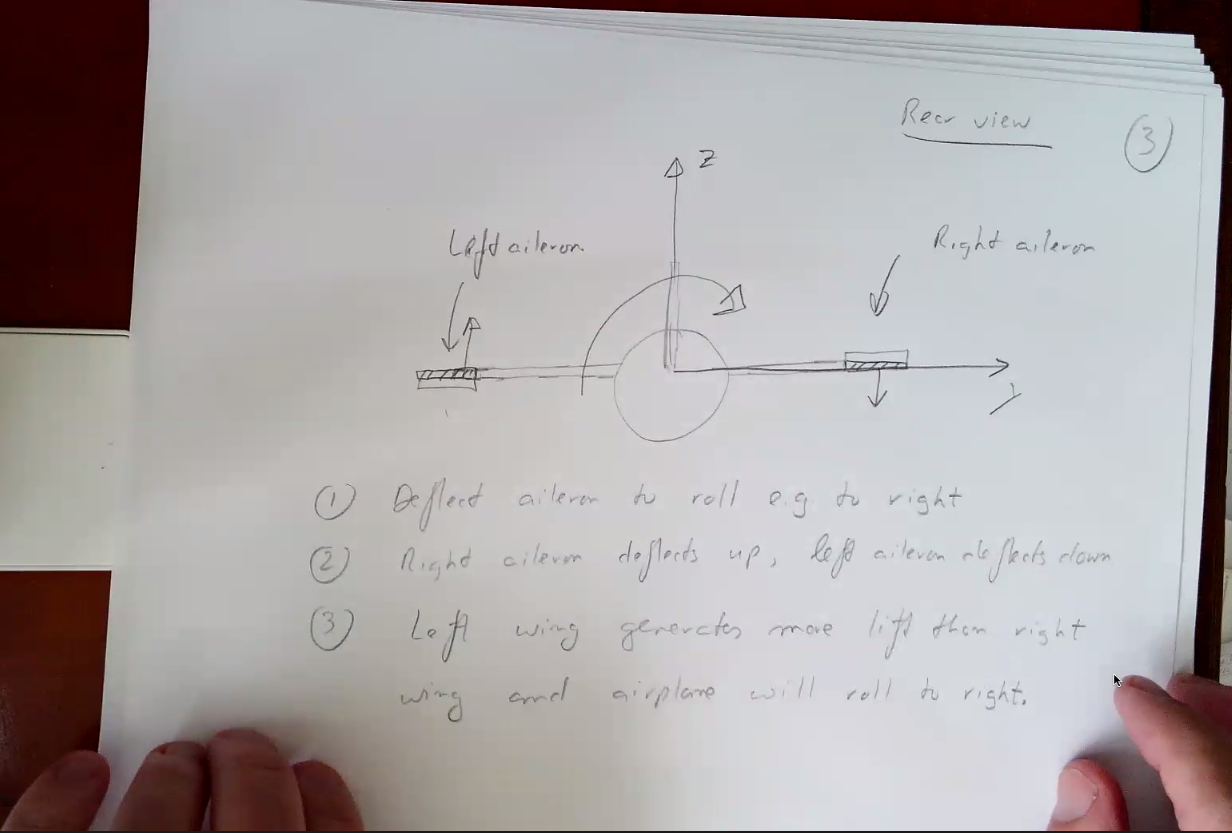 Rear view
3
z
Left aileron
Right aileron
y
1 Deflect aileron to roll e.g to right
2 Right aileron deflects up, left aileron deflects down
3 Left wing generates more lift than right
wing and airplane will roll to right.